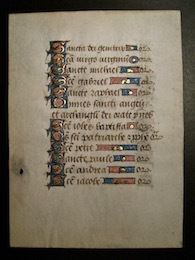 Sancta dei genitrix
Scā virgo virginū
Sancte michael
Scē gabriel
Sancte raphael
Omnes sancti angeli
et archangeli dei orate
Scē iohēs baptista
Oēs scī patriarche
Scē petre
Sancte paule
Scē andrea
Scē iacobe